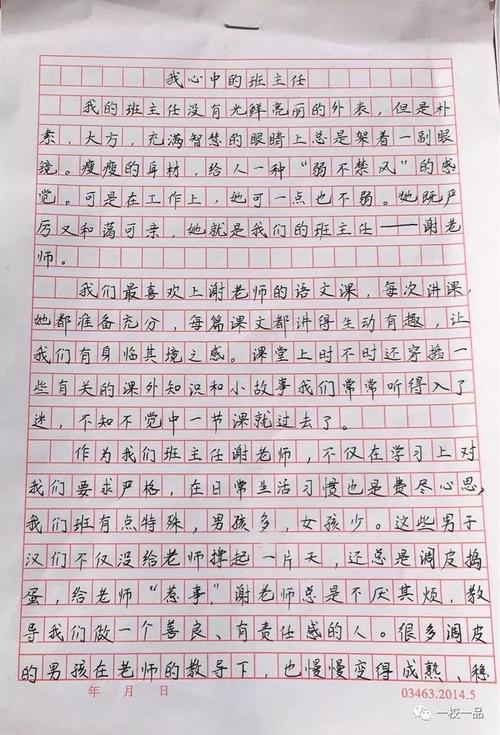 我心中的班主任
我的班主任没有光鲜亮丽的外表，但是朴
素，大方，充满智慧的眼睛上总是架着一副眼
镜。瘦瘦的身材，给人一种“弱不禁风”的感
觉。可是在工作上，她可一点也不弱。她既严
厉又和蔼可亲，她就是我们的班主任——谢老
师。
我们最喜欢上谢老师的语文课，每次讲课，
她都准备充分，每篇课文都讲得生动有趣，让
我们有身临其境之感。课堂上时不时还穿插一
些有关的课外知识和小故事我们常常听得入了
迷，不知不觉中一节课就过去了。
作为我们班主任谢老师，不仅在学习上对
我们要求严格，在日常生活习惯也是费尽心思，
我们班有点特殊，男孩多，女孩少。这些男子
汉们不仅没给老师撑起一片天，还总是调皮捣
蛋，给老师“惹事”，谢老师总是不厌其烦，教
导我们做一个善良、有责任感的人。很多调皮
的男孩在老师的教导下，也慢慢变得成熟、稳
年 月 日 03463.2014.5
一校一品